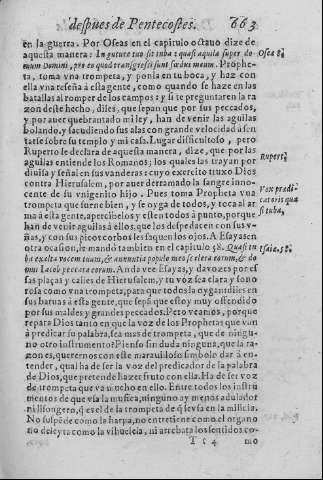 despues de Pentecostes. 663
en la guerra. Por Oseas en el capitulo octauo dize de
aquesta manera: In guture tuo sit tuba: quasi aquila super do- Oseæ 8.
mum Domini, pro eo quod transgressi sunt fœdus meum. Prophe-
ta, toma vna trompeta, y ponla en tu boca, y haz con
ella vna reseña à esta gente, como quando se haze en las
batallas al romper de los campos: y si te preguntaren la ra
zon deste hecho, diles, que sepan que por sus peccados,
y por auer quebrantado mi ley, han de venir las aguilas
bolando, y sacudiendo sus alas con grande velocidad à sen
tarse sobre su templo y mi casa. Lugar difficultoso, pero
Ruperto le declara de aquesta manera, dize, que por las Rupert.
aguilas entiende los Romanos; los quales las trayan por
diuisa y señal en sus vanderas: cuyo exercito truxo Dios
contra Hierusalem, por auer derramado la sangre inno-
cente de su vnigenito hijo. Pues toma Propheta vna Vox prædi-
trompeta que suene bien, y se oyga de todos, y toca al ar catoris qua
ma à esta gente, apercibelos y esten todos à punto, porque si tuba,
han de venir aguilas à ellos, que los despedacen con sus v-
ñas, y con sus picos corbos les saquen los ojos. A Esayas en
otra ocasion, le mandò tambien en el capitulo 58. Quasi tu Isaiæ. 58.
ba exalta vocem tuam, & annuntia populo meo scelera eorum, & do
mui Iacob peccata eorum. Anda vee Esayas, y da vozes por es
sas plaças y calles de Hierusalem, y tu voz sea clara y sono
rosa como vna trompeta, para que todos la oygan: diles en
sus baruas à esta gente, que sepã que estoy muy offendido
por sus maldes y grandes peccados. Pero veamos, porque
repara Dios tanto en que la voz de los Prophetas que van
à predicar su palabra, sea mas de trompeta, que de ningu-
no otro instrumento? Pienso sin duda ninguna, que la ra
zon es, querernos con este marauilloso simbolo dar à en-
tender, qual ha de ser la voz del predicador de la palabra
de Dios, que pretende hazer fruto con ella. Ha de ser voz
de trompeta que va mucho en ello. Entre todos los instrũ
mentos de que vsa la musica, ninguno ay menos adulador
ni lisongero, q̃ es el de la trompeta de q̃ se vsa en la milicia.
No suspẽde como la harpa, no entretiene como el organo
no deleyta como la vihuela, ni arrebata los sentidos co-
T t 4 mo